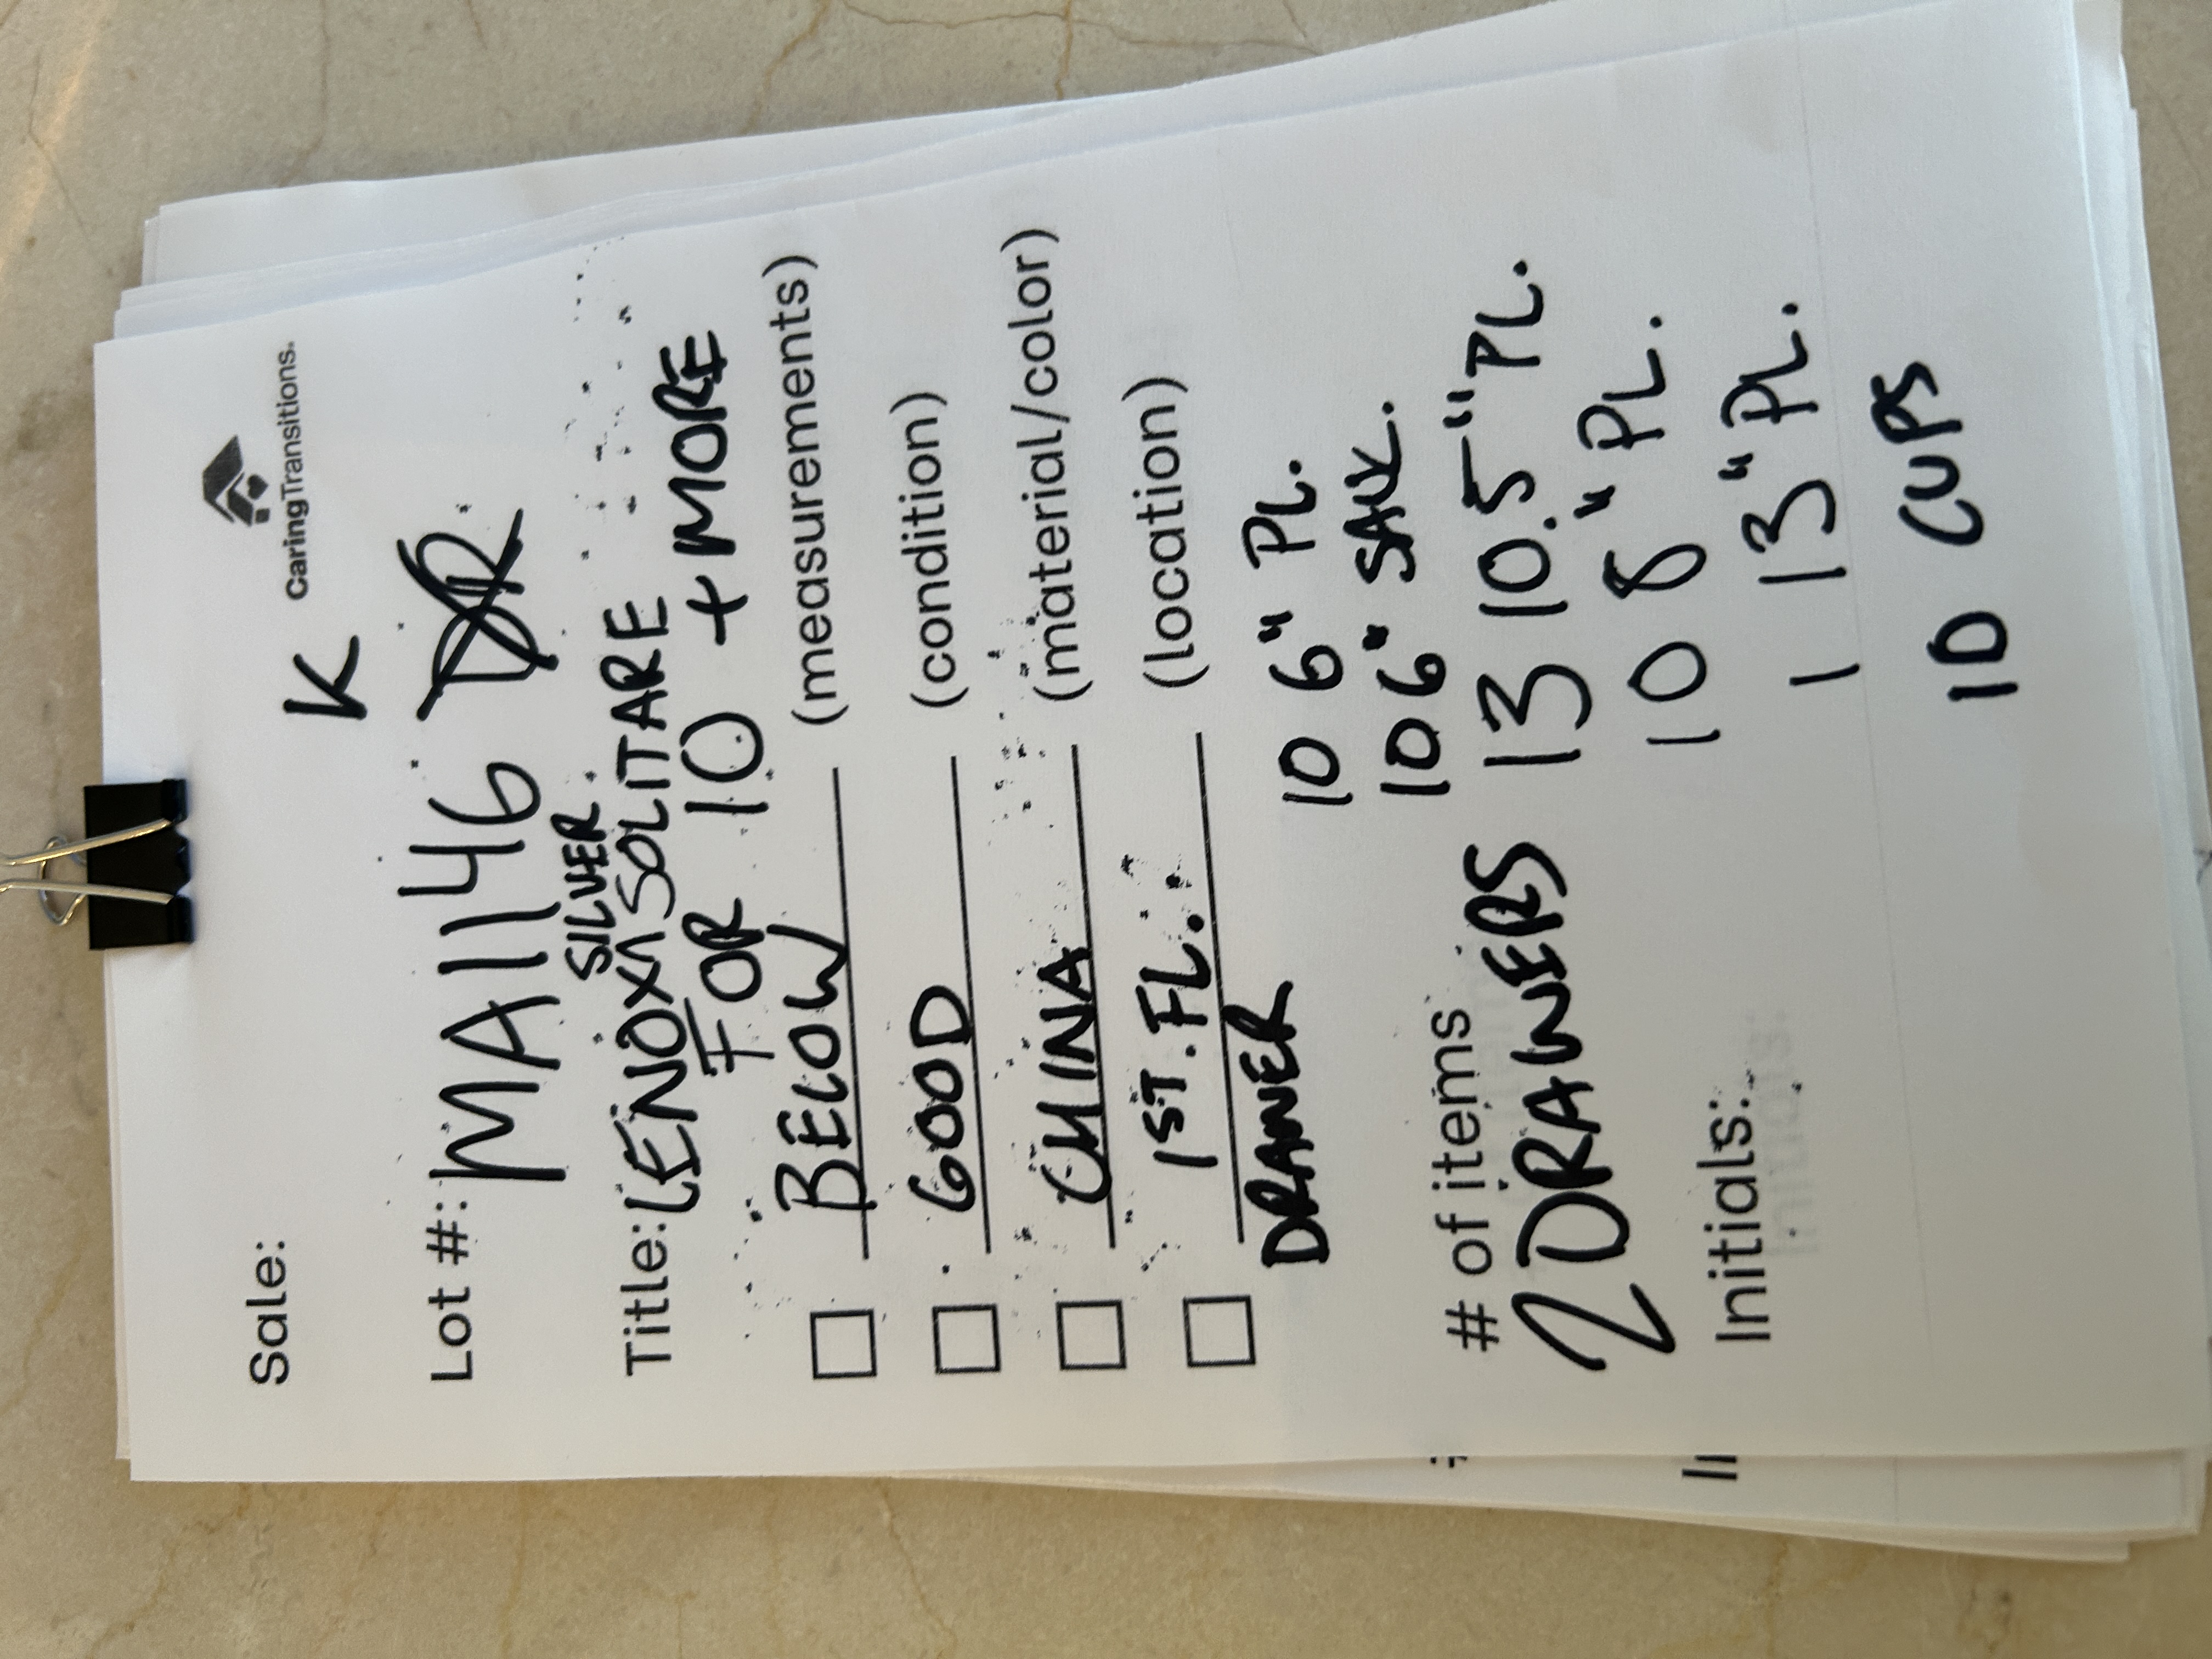 Sale:
K
CaringTransitions.
Lot #: MA1146
SILVER
Title: LENOX ^ SOLITARE
FOR 10 + MORE
BELOW (measurements)
GOOD (condition)
CHINA (material/color)
1ST. FL. (location)
DRAWER
10 6" PL.
10 6" SAU.
# of items
2 DRAWERS
13 10.5" PL.
10 8" PL.
Initials:
1 13" PL.
10 CUPS